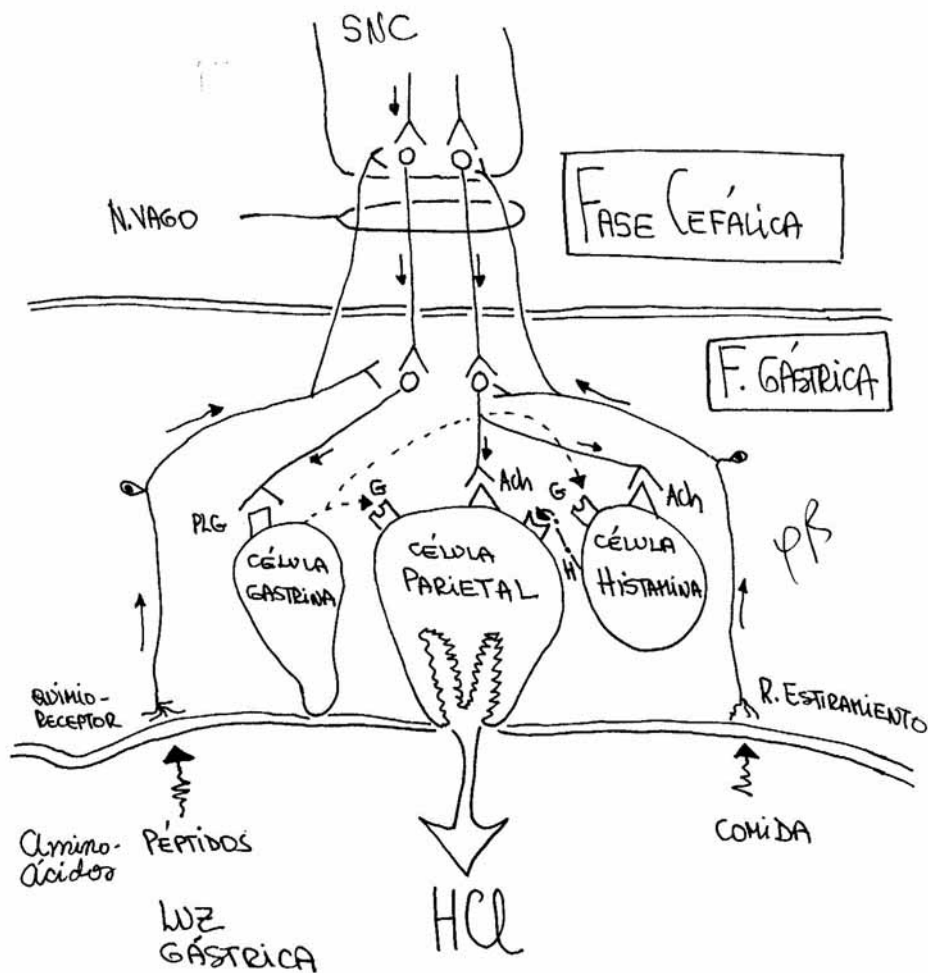 SNC
N. VAGO
FASE CEFÁLICA
F. GÁSTRICA
PLG
G
Ach
G
Ach
H
CÉLULA
GASTRINA
CÉLULA
PARIETAL
CÉLULA
HISTAMINA
QUIMIO-
RECEPTOR
R. ESTIRAMIENTO
Amino-
ácidos
PÉPTIDOS
COMIDA
LUZ
GÁSTRICA
HCl